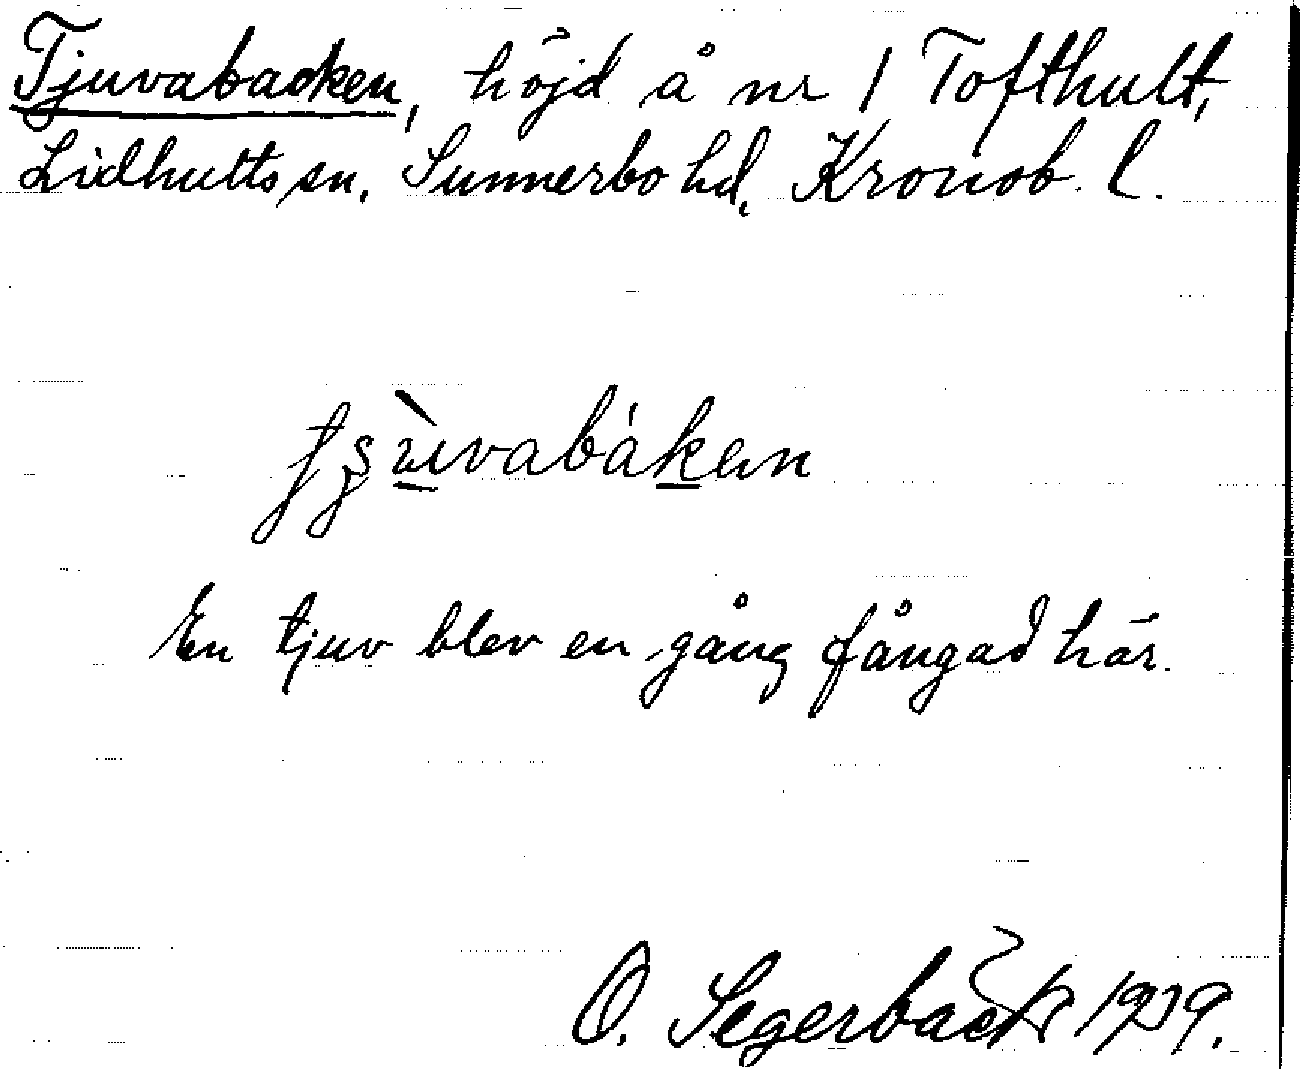 Tjuvabacken, höjd å nr 1 Tofthult,
Lidhults sn. Sunnerbo hd, Kronob. l.
En tjuv blev en gång fångad här.
O. Segerbäck 1929.